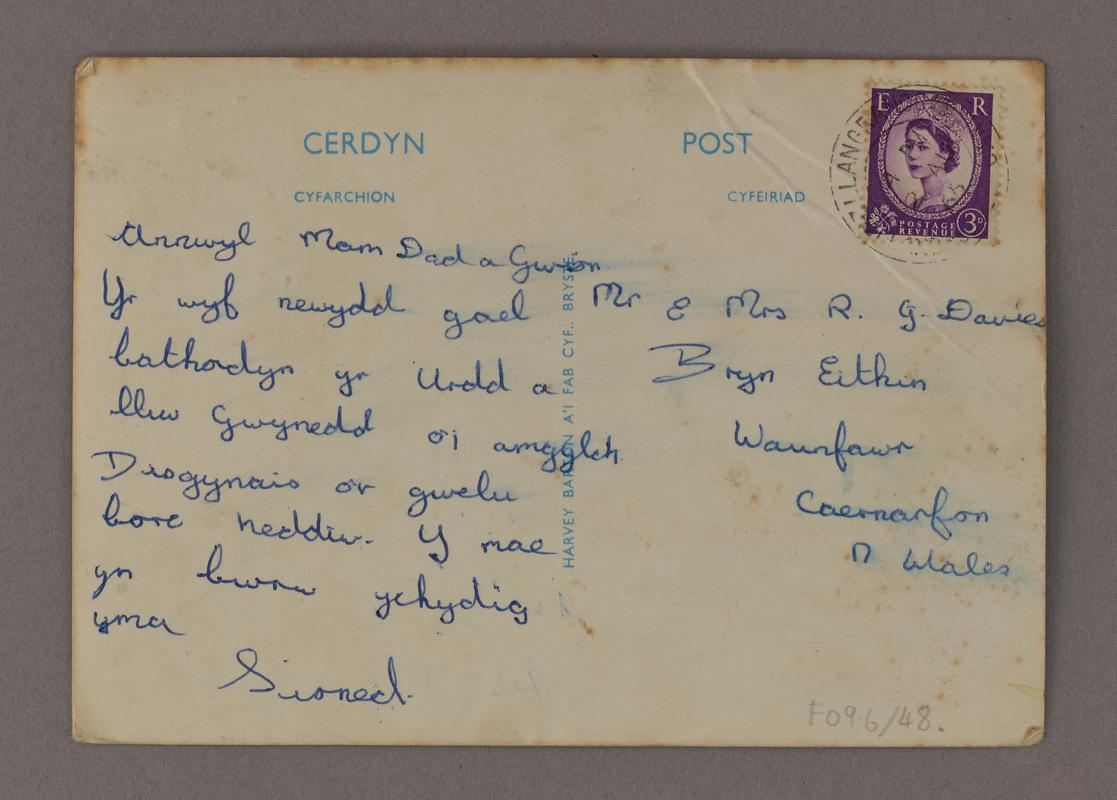 CERDYN POST
CYFARCHION
CYFEIRIAD
Annwyl Mam Dad a Gwion
Yr wyf newydd gael
bathodyn yr Urdd a
lliw Gwynedd o'i amgylch
Drogynais or gwelu
bore heddiw. Y mae
yn bwrw ychydig
yma
Sioned.
HARVEY BARTON A'I FAB CYF., BRYSTE.
Mr & Mrs R. G. Davies
Bryn Eitkin
Waunfawr
Caernarfon
N Wales
E R
POSTAGE
REVENUE
3D
F09.6/48.